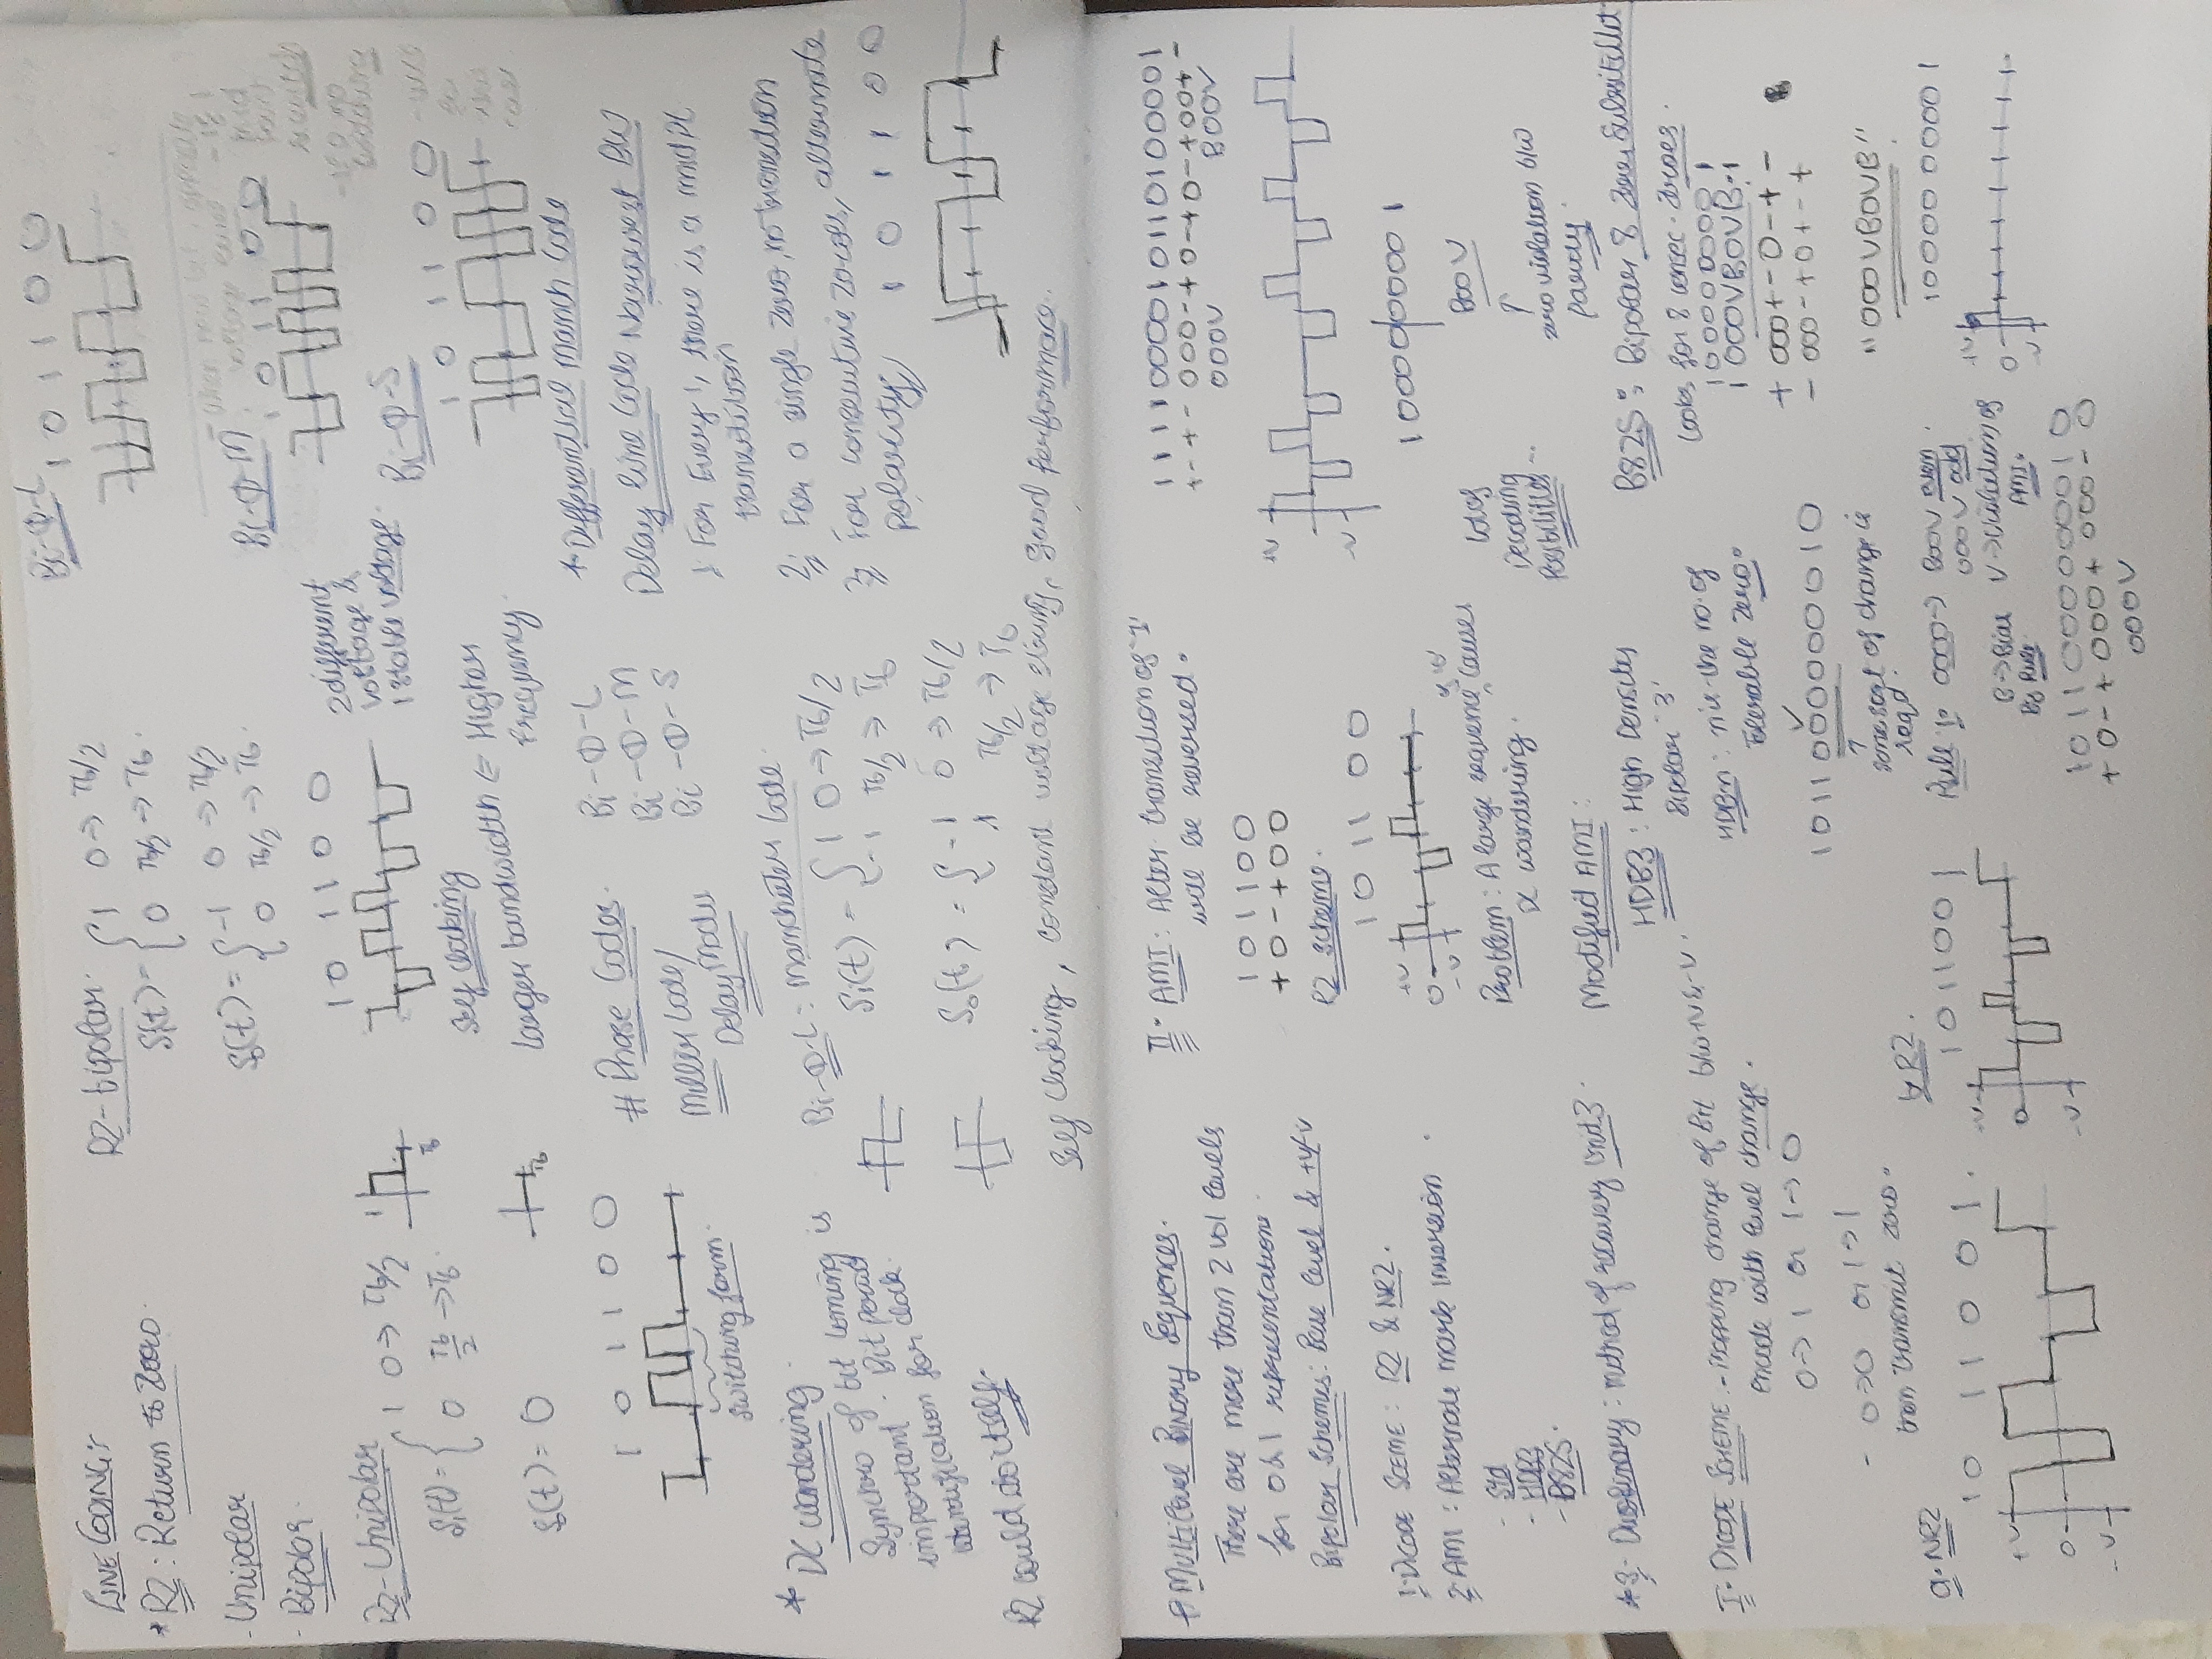 LINE CODING:
* RZ : Return to Zero.
- Unipolar
- Bipolar.
RZ-Unipolar
S₁(t) = { 1 0 → Tb/2
0 Tb/2 → Tb.
1
Tb
S₀(t) = 0
Tb
1 0 1 1 0 0
switching form.
* DC wandering.
Synchro of bit coming is
important. Bit period
identification for clock.
RZ could do itself.
RZ-bipolar.
S₁(t) = { 1 0 → Tb/2
0 Tb/2 → Tb.
S₀(t) = { -1 0 → Tb/2
0 Tb/2 → Tb.
1 0 1 1 0 0
2 different
voltage &
1 stable voltage.
Self clocking
Larger bandwidth ⇐ Higher
frequency.
# Phase Codes.
Bi-Φ-L
Bi-Φ-M
Bi-Φ-S
Miller Code/
Delay Modu
Bi-Φ-L : Manchster Code.
S₁(t) = { 1 0 → Tb/2
-1 Tb/2 → Tb
S₀(t) = { -1 0 → Tb/2
1 Tb/2 → Tb
Self Clocking, constant voltage swing, good performace.
Bi-Φ-L
1 0 1 1 0 0
Bi-Φ-M
1 0 1 1 0 0
Bi-Φ-S
1 0 1 1 0 0
* Differential Manch Code
Delay line Code Narrowest BW
1. For Every 1, there is a mid pt
transition
2; For a single zero, no transition
3; For consecutive zeroes, alternate
polarity;
1 0 1 1 0 0
# Multilevel Binary Sequences.
There are more than 2 vol levels
for 0 & 1 representation.
Bipolar Schemes: Base level & +v/-v
1. DICODE SCEME : RZ & NRZ.
2. AMI : Alternate mark inversion
- Std
- HDB3
- B8ZS.
* 3- Duobinary : method of recovery Unit 3.
I. DICODE SCHEME - Mapping change of Bit b/w +V & -V.
Encode with level change.
0→1 or 1→0
- 0→0 or 1→1
then transmit zero.
a. NRZ
1 0 1 1 0 0 1.
+V
0
-V
b RZ.
1 0 1 1 0 0 1
+V
0
-V
II. AMI : Alter transition of '1'
will be reversed.
1 0 1 1 0 0
+ 0 - + 0 0
RZ scheme.
1 0 1 1 0 0
+V
0
-V
Problem : A large sequence causes
DC wandering.
Modified AMI :
HDB3 : High Density
Bipolar '3'
HDBn : n is the no. of
tolerable zero.
1 0 1 1 0 0 0 0 0 0 0 0 1 0
some sort of change is
reqd.
Rule 1. 0000 → B00V even.
000V odd
B → Bias V → Violation of
By Rule. AMI.
1 0 1 1 0 0 0 0 0 0 0 1 0
+ 0 - + 000 + 000 - 0
000V
1 1 1 1 0 0 0 0 1 0 1 1 0 1 0 0 0 0 1
+ - + - 0 0 0 - + 0 - + 0 - + 0 0 + -
000V B00V
+V
-V
1 0 0 0 0 0 0 0 0 1
Lot of
Decoding
Possibilities..
B00V
↑
zero violation b/w
parity.
B8ZS : Bipolar 8 Zeros Subsititut
Looks for 8 consec. Zeroes.
1 0 0 0 0 0 0 0 0 1
1 000VB0VB 1
+ 000 + - 0 - + -
- 000 - + 0 + - +
"000VB0VB"
1 0 0 0 0 0 0 0 0 1
+V
0
-V